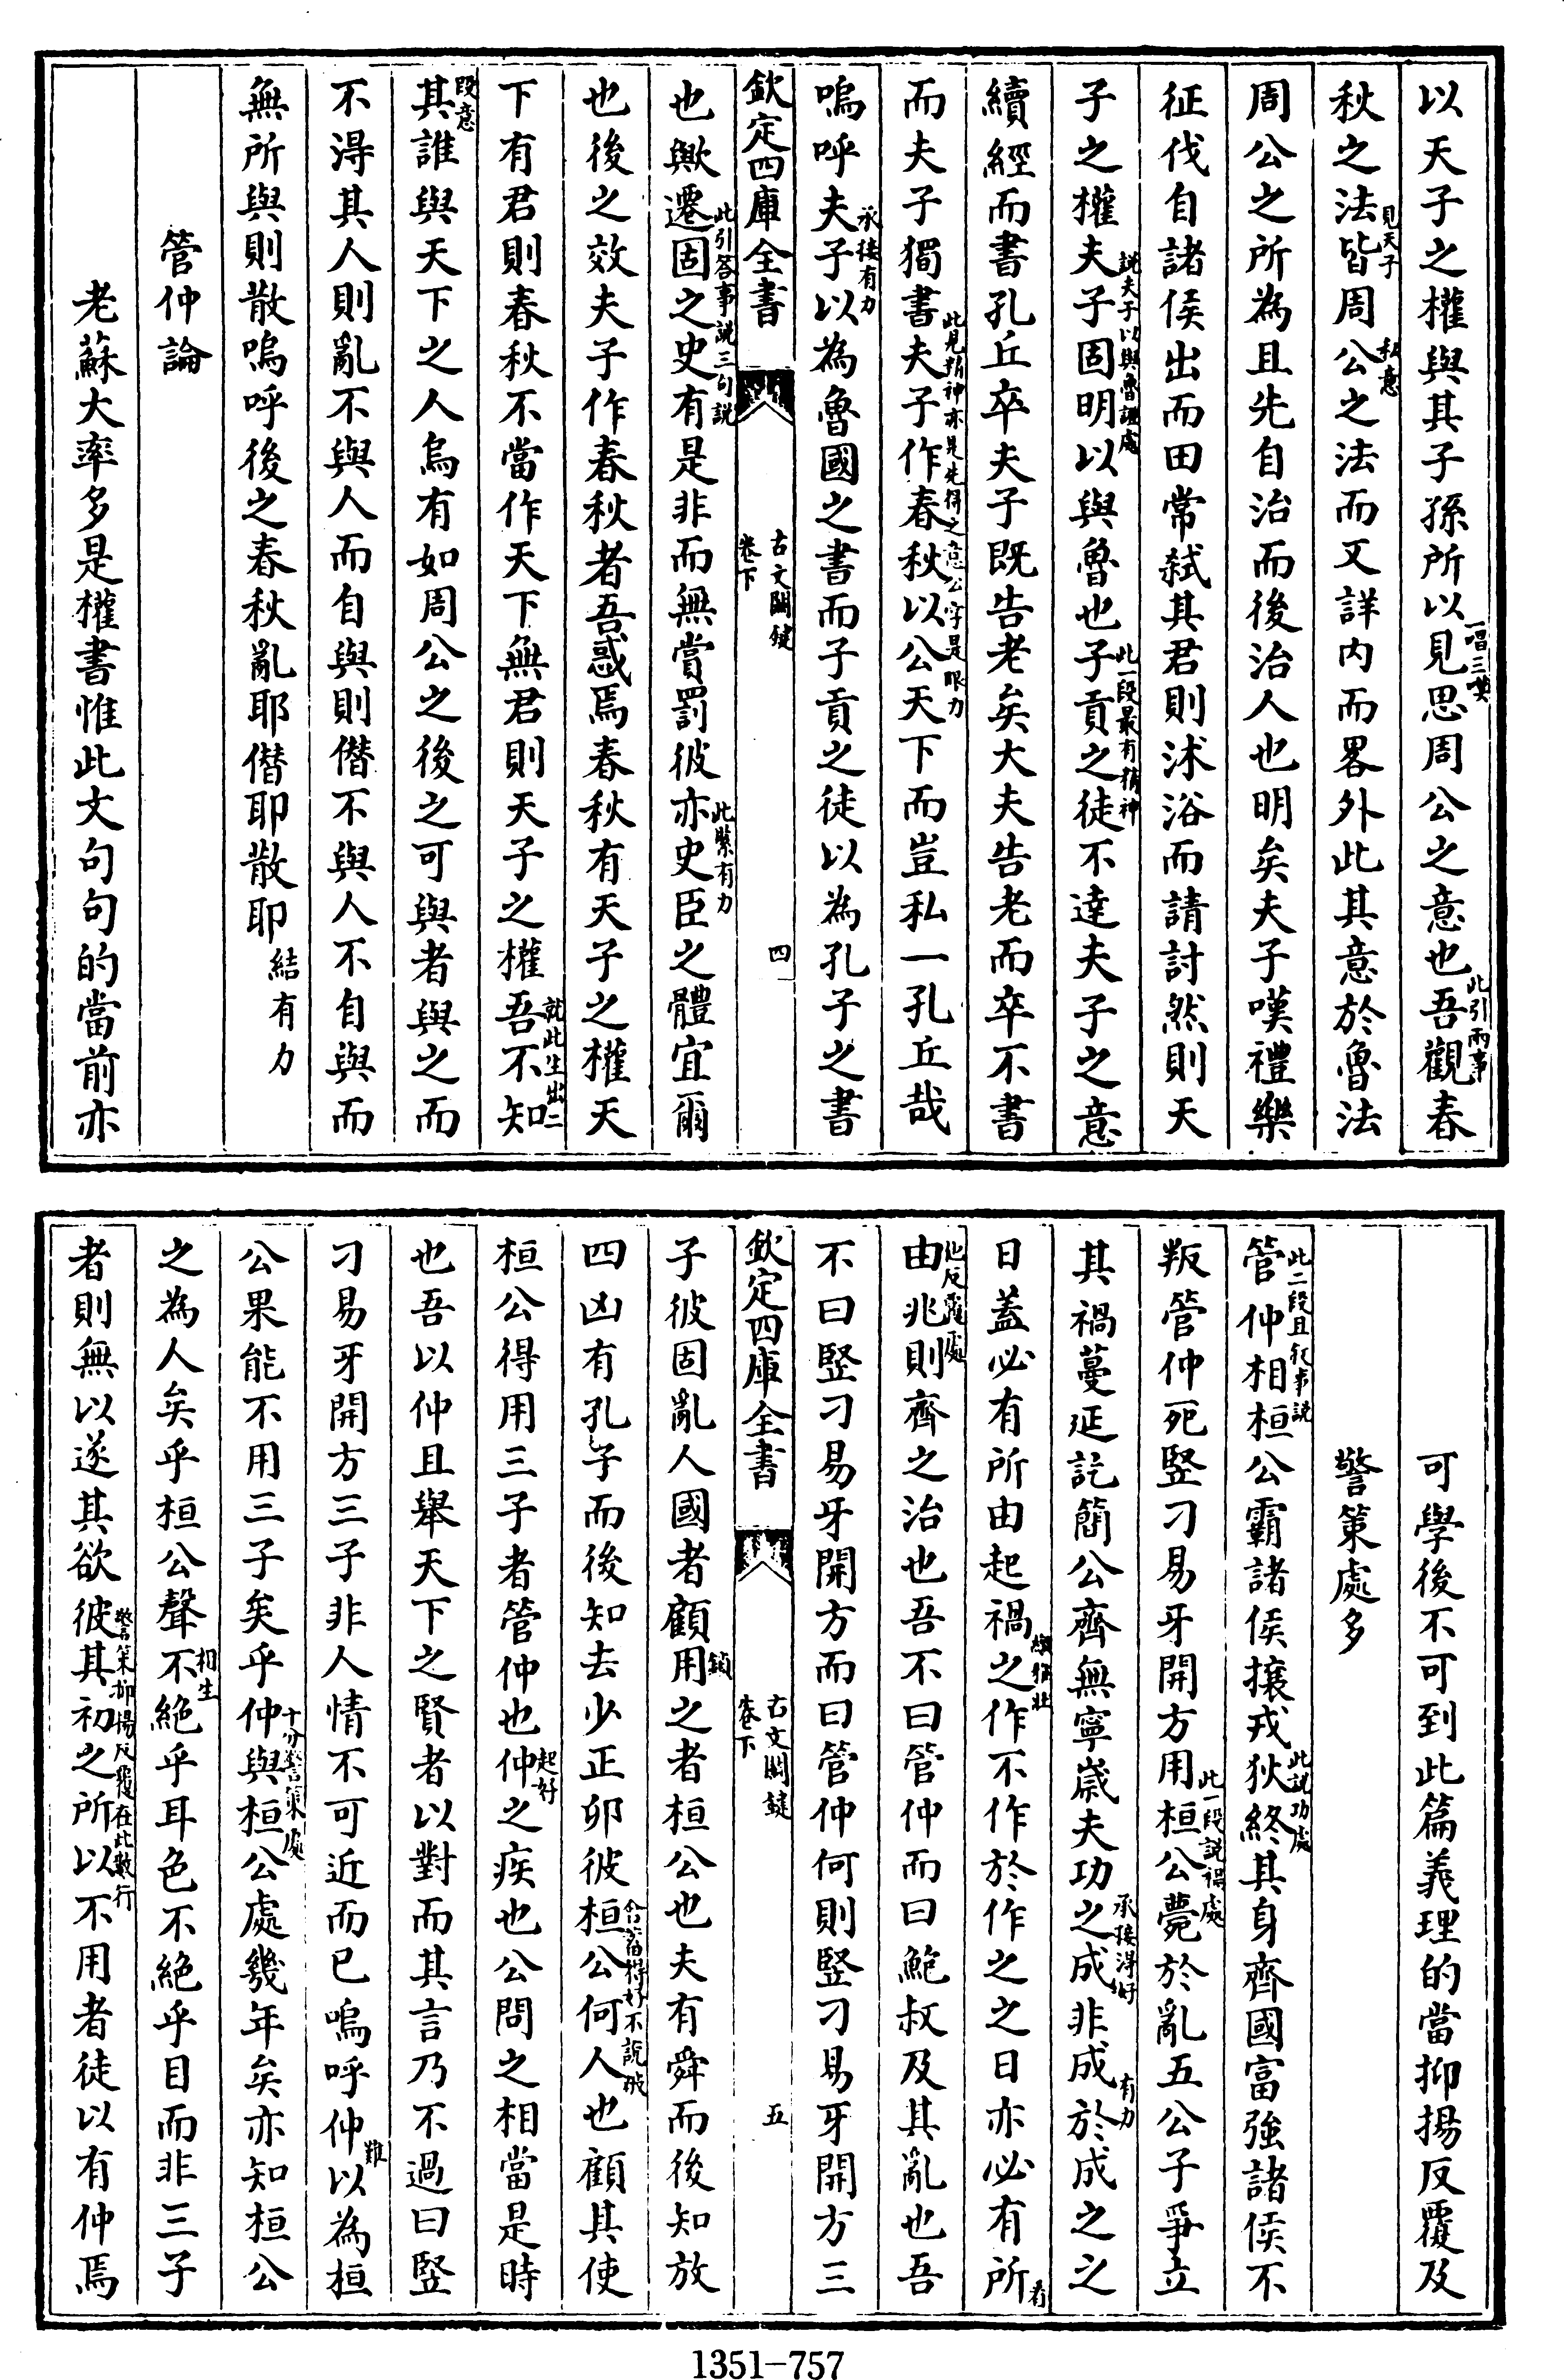 以天子之權與其子孫所以見思周公之意也吾觀春
一唱三嘆
此引兩事
秋之法皆周公之法而又詳內而畧外此其意於魯法
見天子
私意
周公之所為且先自治而後治人也明矣夫子嘆禮樂
征伐自諸侯出而田常弑其君則沭浴而請討然則天
子之權夫子固明以與魯也子貢之徒不達夫子之意
說夫子以與魯證處
此一段最有精神
續經而書孔丘卒夫子既告老矣大夫告老而卒不書
而夫子獨書夫子作春秋以公天下而豈私一孔丘哉
此見精神亦是先得之意公字是眼力
嗚呼夫子以為魯國之書而子貢之徒以為孔子之書
承接有力
欽定四庫全書
古文關鍵
卷下
四
也歟遷固之史有是非而無賞罰彼亦史臣之體宜爾
此引答事說三句說
此緊有力
也後之效夫子作春秋者吾惑焉春秋有天子之權天
下有君則春秋不當作天下無君則天子之權吾不知
就此生出二
其誰與天下之人烏有如周公之後之可與者與之而
段意
不得其人則亂不與人而自與則僭不與人不自與而
無所與則散嗚呼後之春秋亂耶僭耶散耶
結有力
管仲論
老蘇大率多是權書惟此文句句的當前亦
可學後不可到此篇義理的當抑揚反覆及
警策處多
管仲相桓公霸諸侯攘戎狄終其身齊國富強諸侯不
此二段且叙事說
此說功處
叛管仲死竪刁易牙開方用桓公薨於亂五公子爭立
此一段說禍處
其禍蔓延訖簡公齊無寧嵗夫功之成非成於成之之
承接得好
有力
日蓋必有所由起禍之作不作於作之之日亦必有所
看
由兆則齊之治也吾不曰管仲而曰鮑叔及其亂也吾
不曰竪刁易牙開方而曰管仲何則竪刁易牙開方三
欽定四庫全書
古文關鍵
卷下
五
子彼固亂人國者顧用之者桓公也夫有舜而後知放
四凶有孔子而後知去少正卯彼桓公何人也顧其使
含蓄得好不說破
桓公得用三子者管仲也仲之疾也公問之相當是時
起好
也吾以仲且舉天下之賢者以對而其言乃不過曰竪
刁易牙開方三子非人情不可近而已嗚呼仲以為桓
難
公果能不用三子矣乎仲與桓公處幾年矣亦知桓公
十分警策處
之為人矣乎桓公聲不絶乎耳色不絶乎目而非三子
相生
者則無以遂其欲彼其初之所以不用者徒以有仲焉
警策抑揚反覆在此數行
1351-757